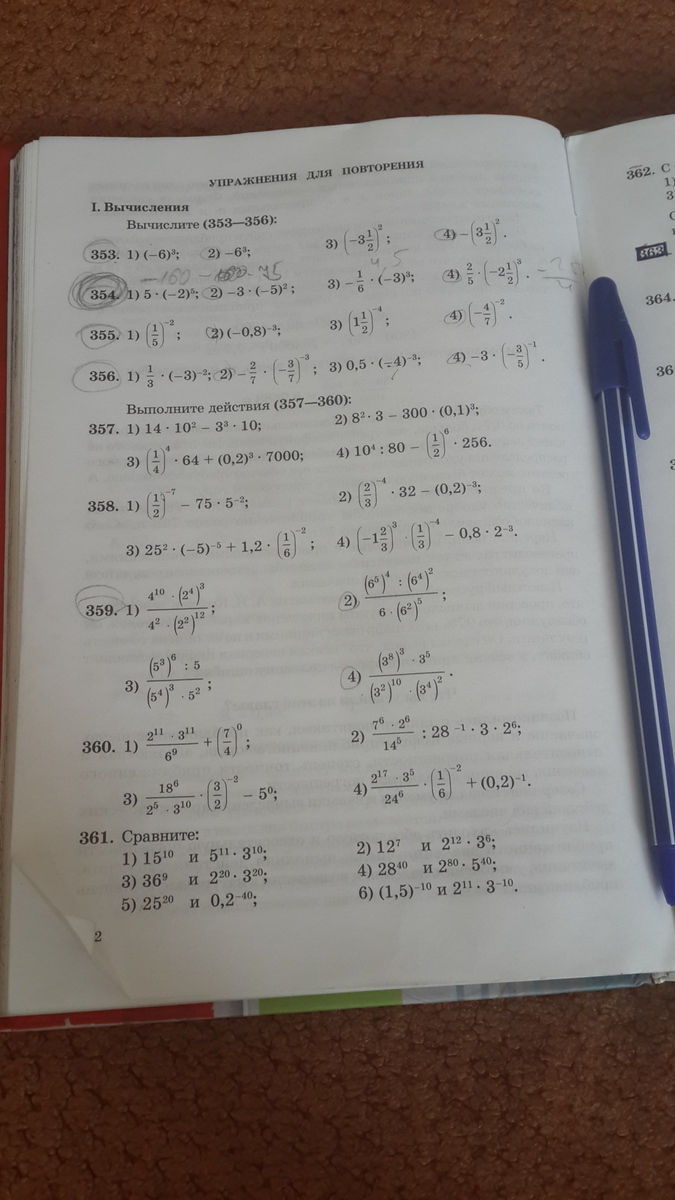 УПРАЖНЕНИЯ ДЛЯ ПОВТОРЕНИЯ
I. Вычисления
Вычислите (353—356):
353. 1) (−6)³; 2) −6³; 3) (−3 1/2)²; 4) −(3 1/2)².
−160 −75 4,5
354. 1) 5 · (−2)⁵; 2) −3 · (−5)²; 3) −1/6 · (−3)³; 4) 2/5 · (−2 1/2)³.
355. 1) (1/5)⁻²; 2) (−0,8)⁻³; 3) (1 1/2)⁻⁴; 4) (−4/7)⁻².
356. 1) 1/3 · (−3)⁻²; 2) −2/7 · (−3/7)⁻³; 3) 0,5 · (−4)⁻³; 4) −3 · (−3/5)⁻¹.
Выполните действия (357—360):
357. 1) 14 · 10² − 3³ · 10; 2) 8² · 3 − 300 · (0,1)³;
3) (1/4)⁴ · 64 + (0,2)³ · 7000; 4) 10⁴ : 80 − (1/2)⁶ · 256.
358. 1) (1/2)⁻⁷ − 75 · 5⁻²; 2) (2/3)⁻⁴ · 32 − (0,2)⁻³;
3) 25² · (−5)⁻⁵ + 1,2 · (1/6)⁻²; 4) (−1 2/3)³ · (1/3)⁻⁴ − 0,8 · 2⁻³.
359. 1) (4¹⁰ · (2⁴)³)/(4² · (2²)¹²); 2) ((6⁵)⁴ : (6⁴)²)/(6 · (6²)⁵);
3) ((5³)⁶ : 5)/((5⁴)³ · 5²); 4) ((3⁸)³ · 3⁵)/((3²)¹⁰ · (3⁴)²).
360. 1) (2¹¹ · 3¹¹)/6⁹ + (7/4)⁰; 2) (7⁶ · 2⁶)/14⁵ : 28⁻¹ · 3 · 2⁶;
3) 18⁶/(2⁵ · 3¹⁰) · (3/2)⁻² − 5⁰; 4) (2¹⁷ · 3⁵)/24⁶ · (1/6)⁻² + (0,2)⁻¹.
361. Сравните:
1) 15¹⁰ и 5¹¹ · 3¹⁰; 2) 12⁷ и 2¹² · 3⁶;
3) 36⁹ и 2²⁰ · 3²⁰; 4) 28⁴⁰ и 2⁸⁰ · 5⁴⁰;
5) 25²⁰ и 0,2⁻⁴⁰; 6) (1,5)⁻¹⁰ и 2¹¹ · 3⁻¹⁰.
2
362. С
1)
3)
363
364.
36